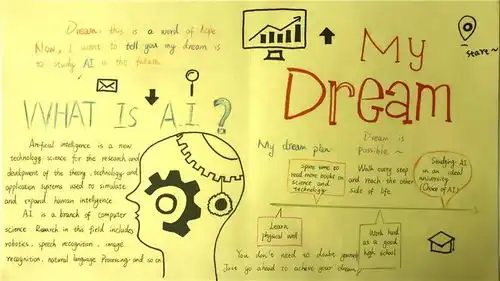 Dream, this is a word of hope
Now, I want to tell you my dream is
to study AI in the future.
WHAT IS A.I ?
Artificial intelligence is a new
technology science for the research and
development of the theory, technology and
application systems used to simulate
and expand human intelligence
A.I. is a branch of computer
science. Research in this field includes
robotics, speech recognition, image
recognition, natural language Processing and so on
My
Dream
start~
My dream plan
Dream is
possible~
Spare time to
read more books on
science and
technology
Walk every step
and reach the other
side of life
Studying AI
in an ideal
university
(Choice of AI)
Learn
physical well
Work hard
as a good
high school
You don't need to doubt yourself
Just go ahead to achieve your dream